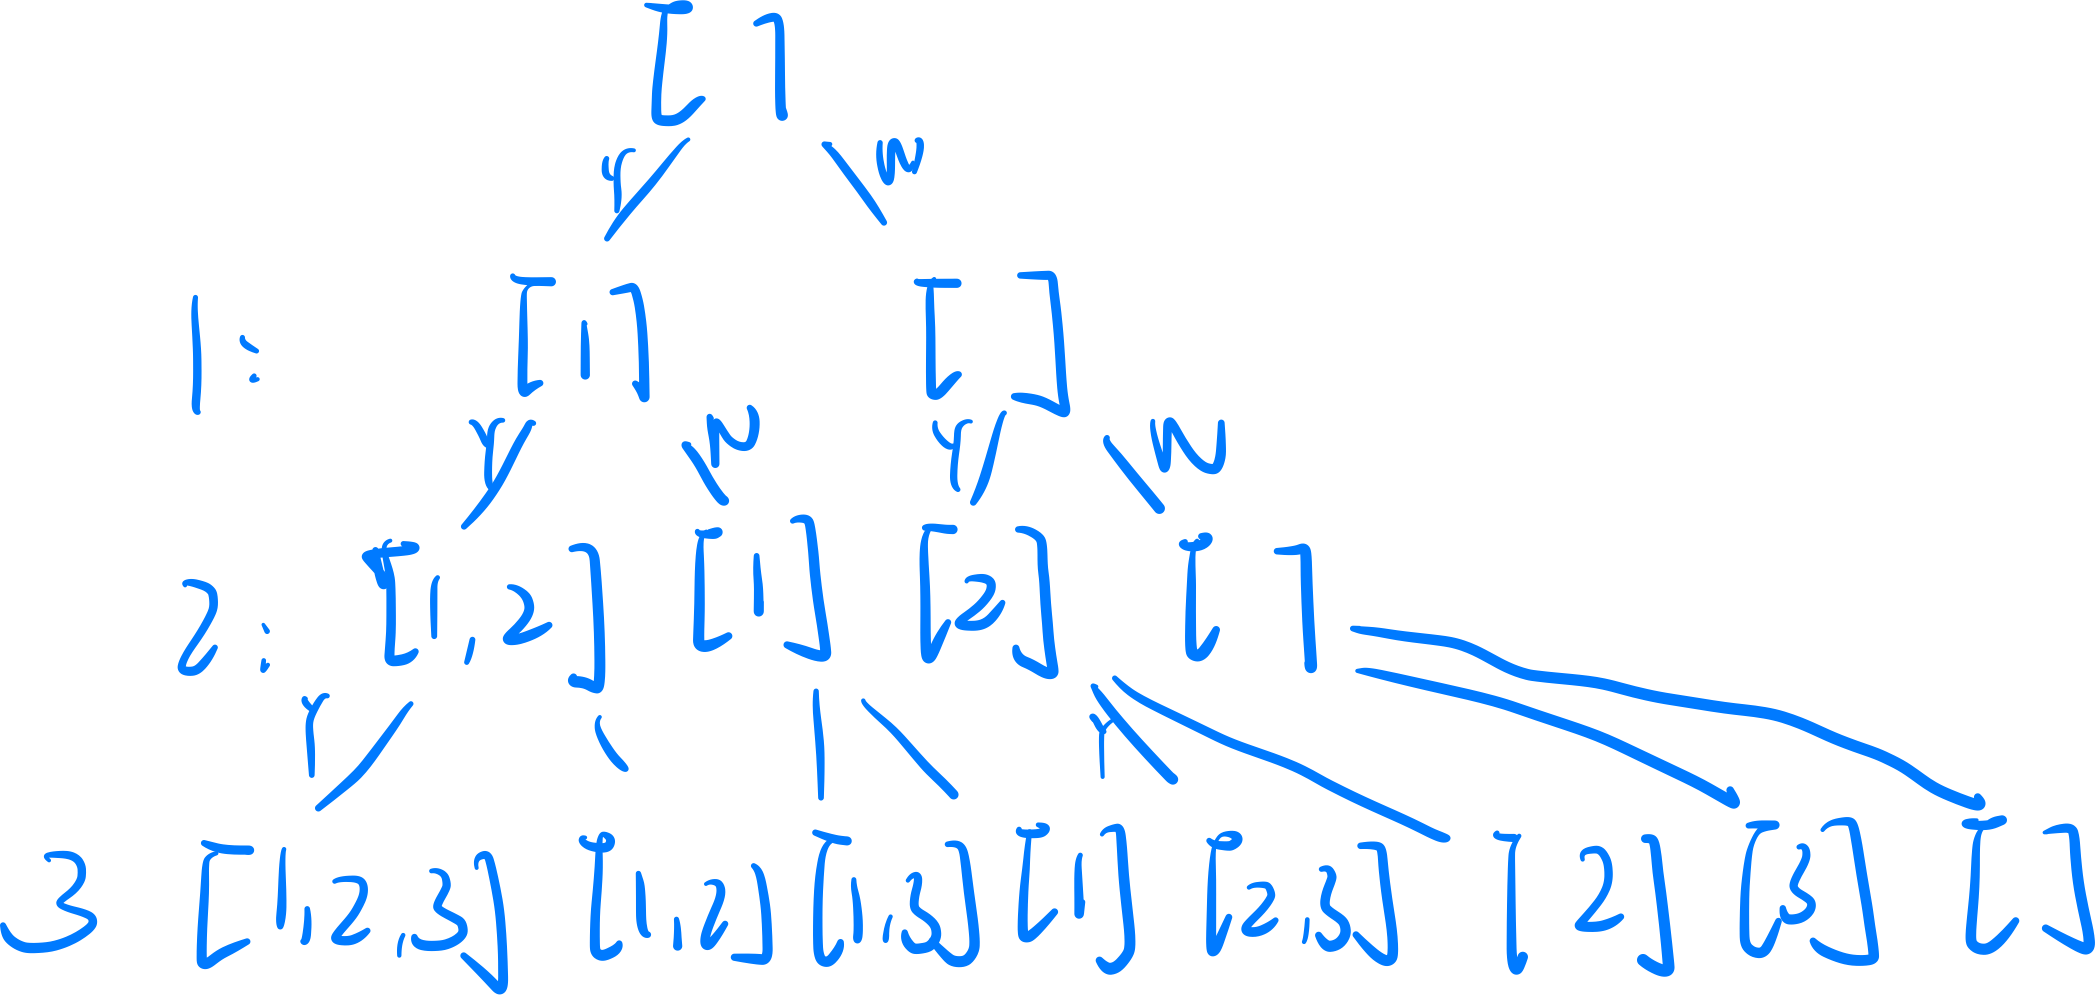 [ ]
Y N
1: [1] [ ]
Y N Y N
2: [1,2] [1] [2] [ ]
Y
3 [1,2,3] [1,2] [1,3] [1] [2,3] [2] [3] [ ]